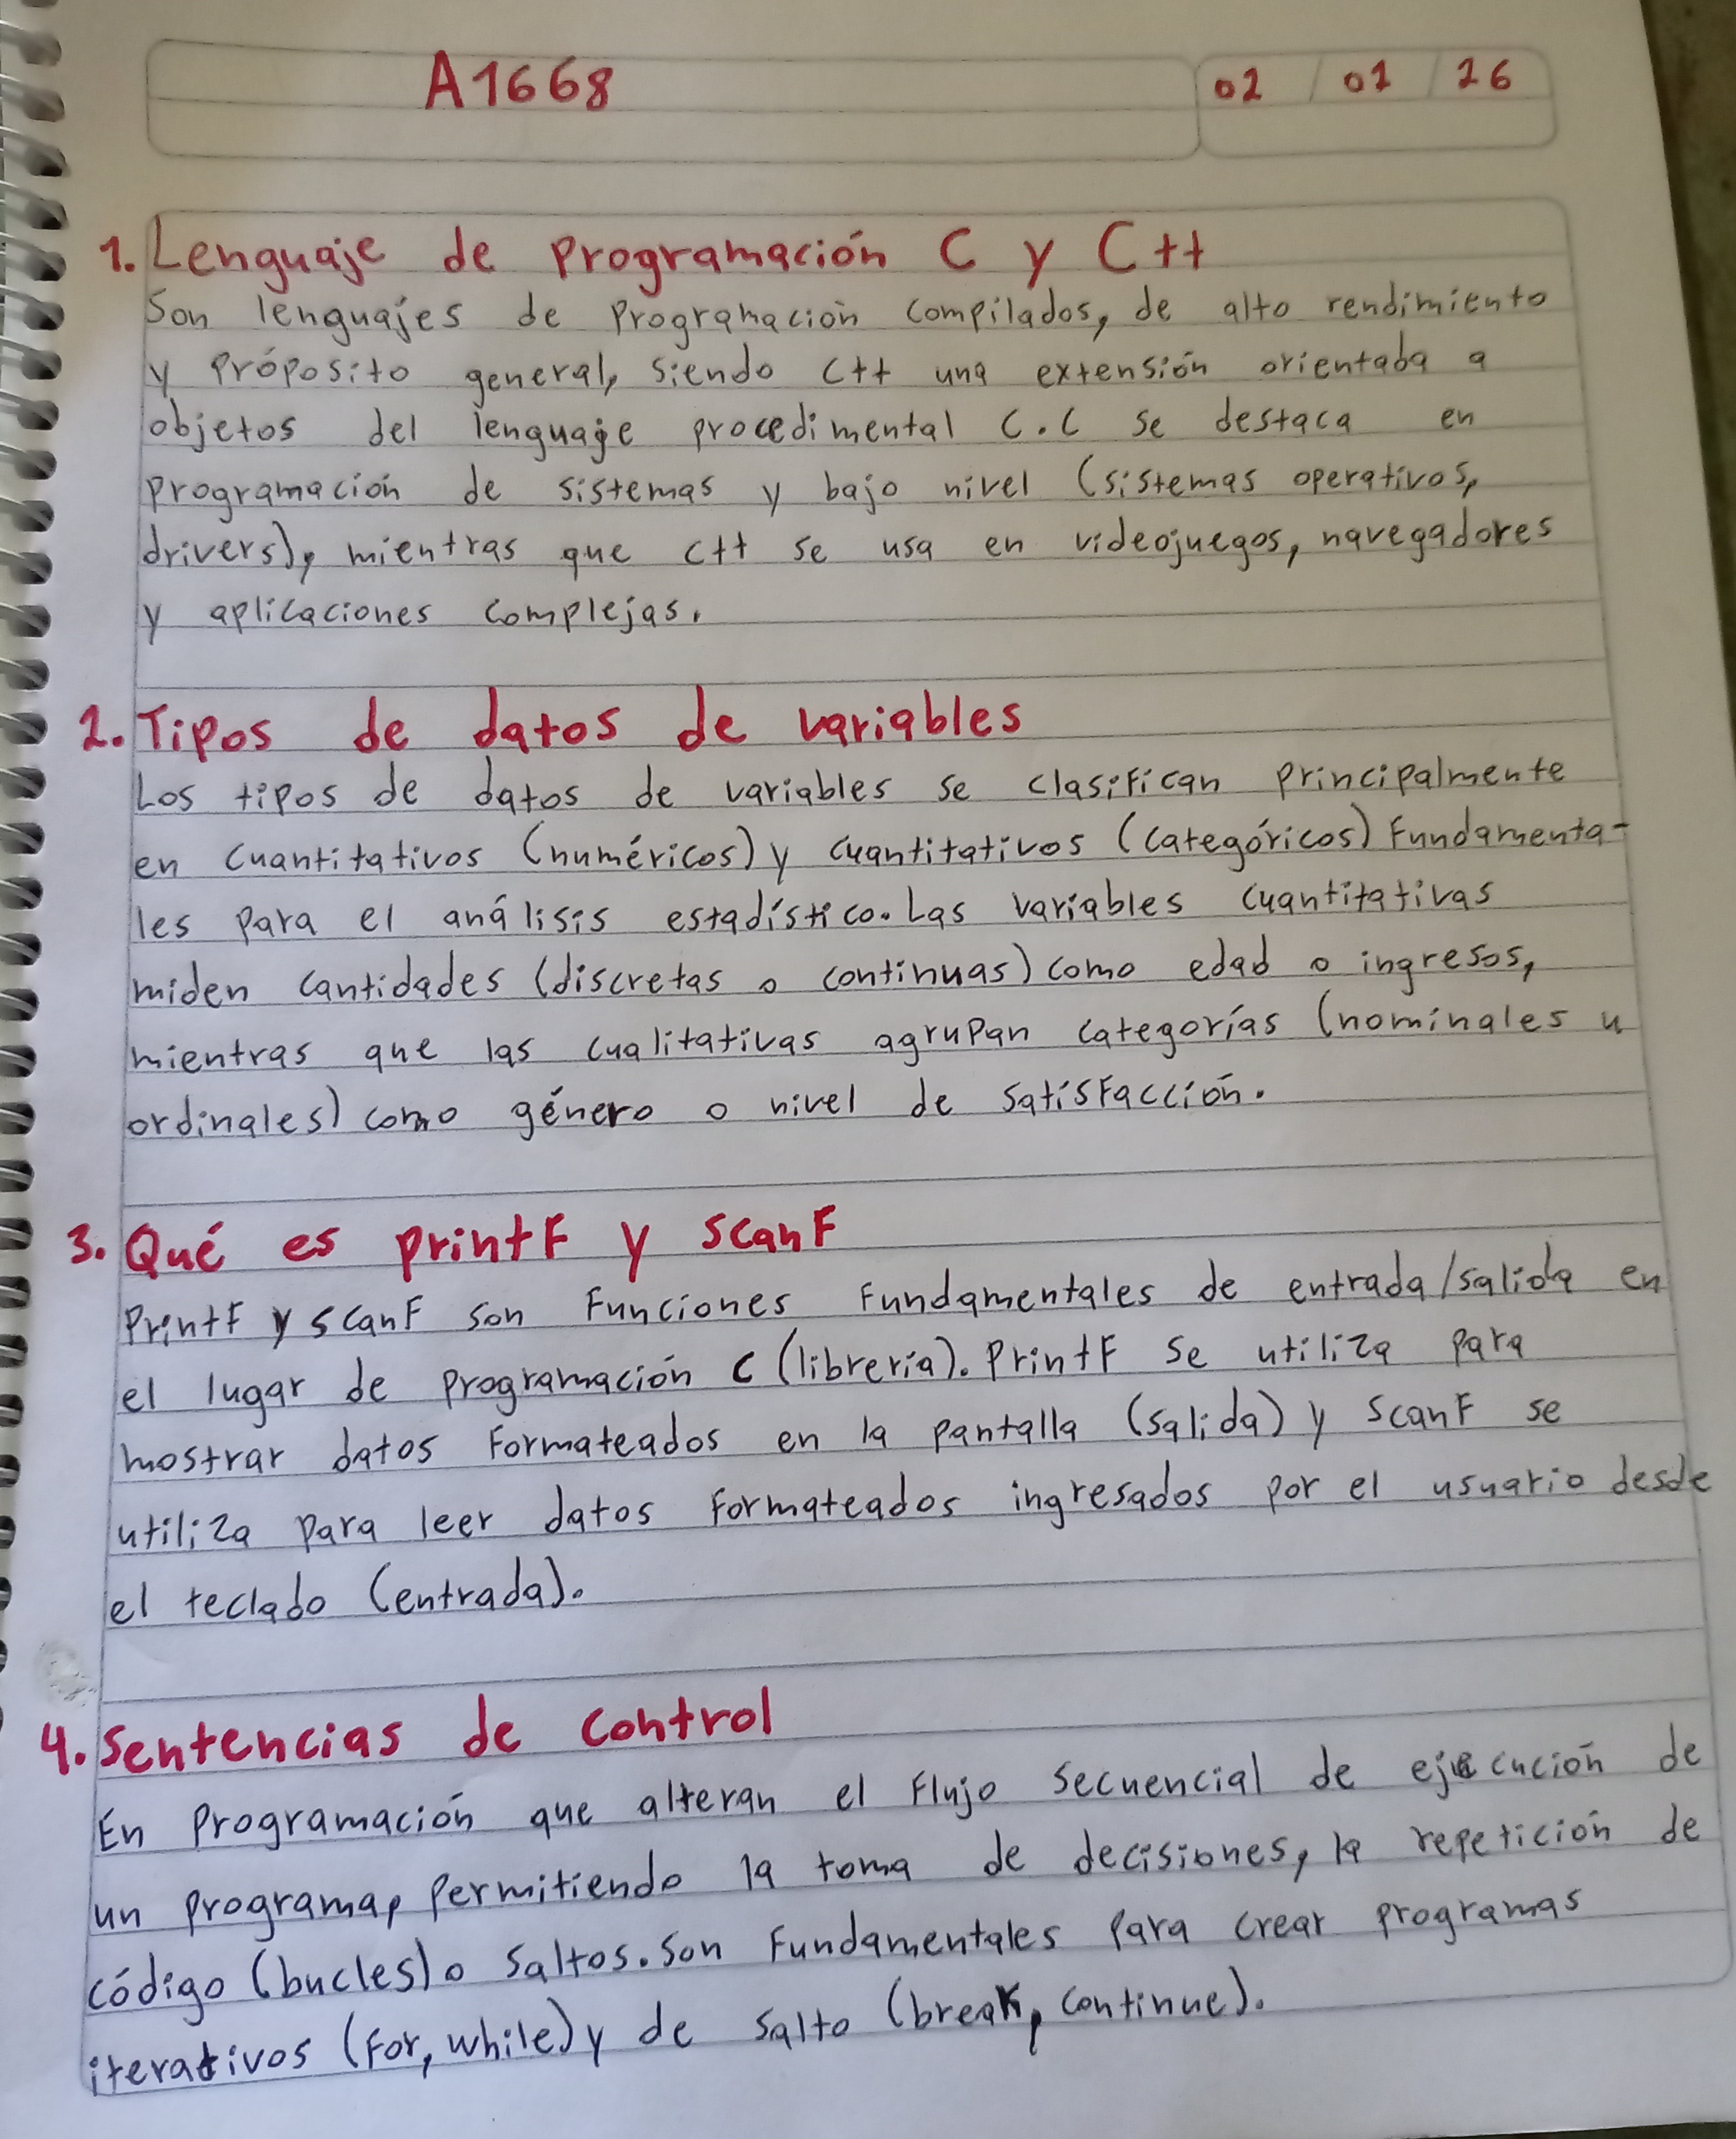 A1668
02 / 01 / 26
1. Lenguaje de Programación C y C++
Son lenguajes de Programación compilados, de alto rendimiento
y Próposito general, siendo C++ una extensión orientaba a
objetos del lenguaje procedimental C. C se destaca en
programación de sistemas y bajo nivel (sistemas operativos,
drivers), mientras que C++ se usa en videojuegos, navegadores
y aplicaciones complejas.
2. Tipos de datos de variables
Los tipos de datos de variables se clasifican principalmente
en cuantitativos (numéricos) y cuantitativos (categóricos) Fundamenta-
les para el análisis estadístico. Las variables cuantitativas
miden cantidades (discretas o continuas) como edad o ingresos,
mientras que las cualitativas agrupan categorías (nominales u
ordinales) como género o nivel de satisfacción.
3. Qué es printf y scanf
Printf y scanf son Funciones Fundamentales de entrada/salida en
el lugar de programación C (librería). Printf se utiliza para
mostrar datos Formateados en la pantalla (salida) y scanf se
utiliza para leer datos Formateados ingresados por el usuario desde
el teclado (entrada).
4. Sentencias de control
En Programación que alteran el Flujo secuencial de ejecución de
un programa, permitiendo la toma de decisiones, la repetición de
código (bucles) o saltos. Son Fundamentales para crear programas
iterativos (For, while) y de salto (break, continue).